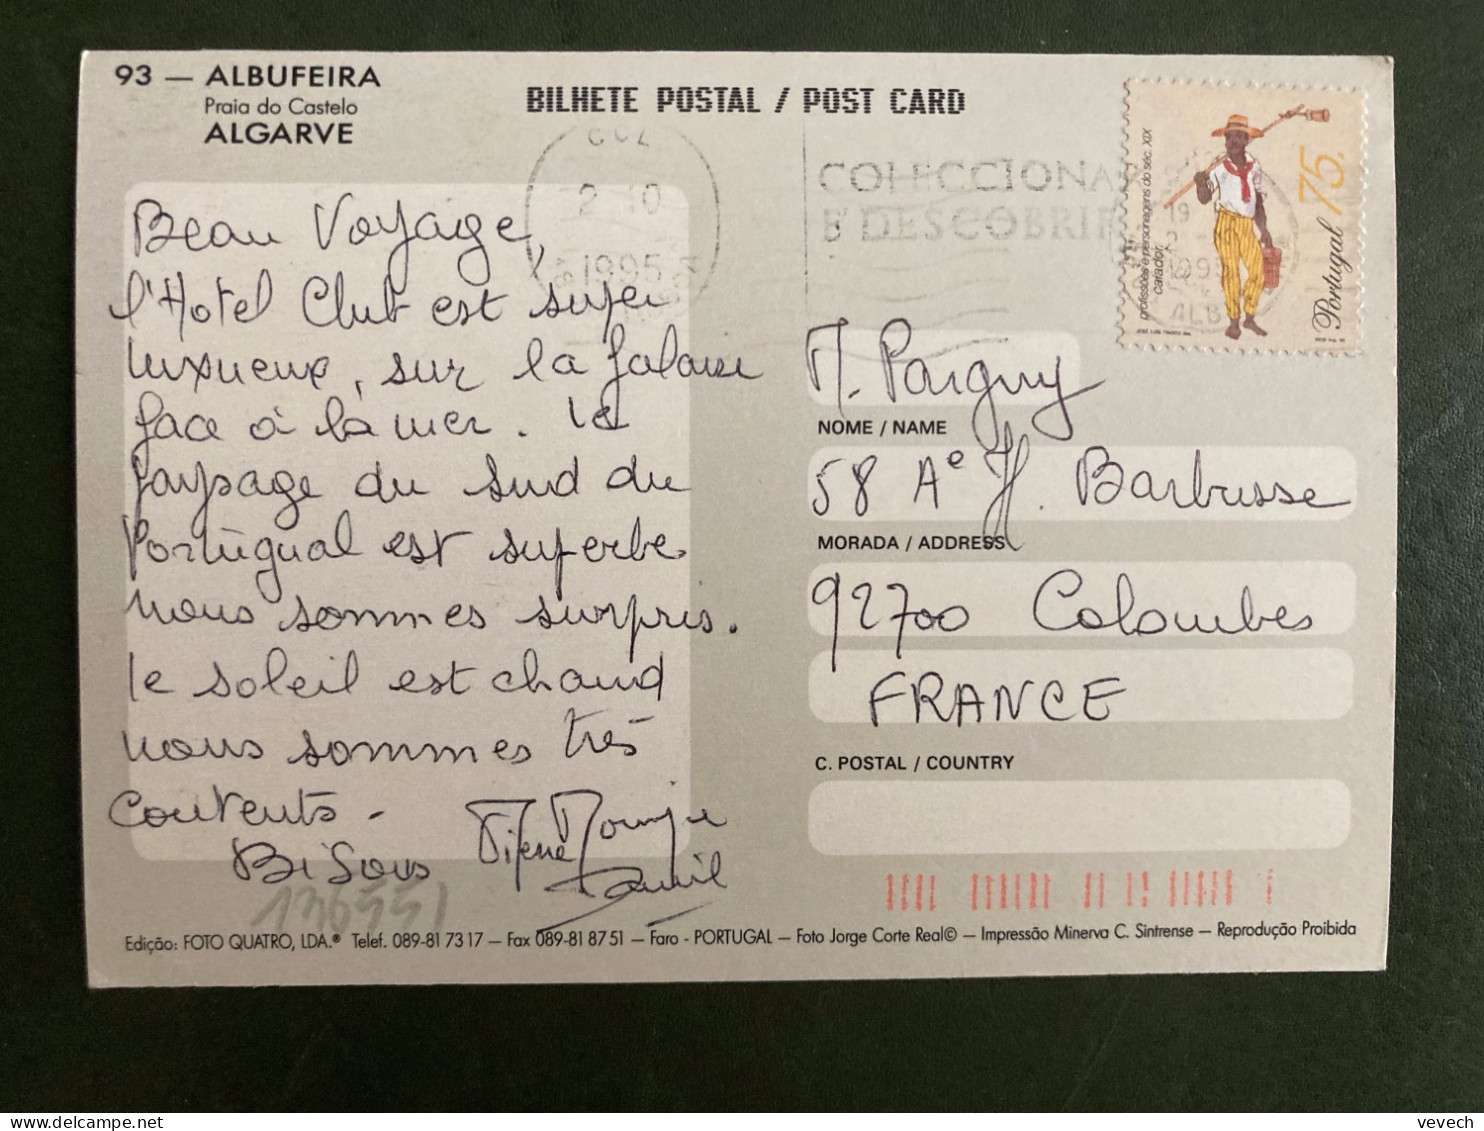 93 — ALBUFEIRA
Praia do Castelo
ALGARVE
BILHETE POSTAL / POST CARD
COLECCIONAR
E DESCOBRIR
2 10
1995
profissões e personagens do séc. XIX
caiador
75.
Portugal
19
1995
ALB
Beau Voyage,
l'Hotel Club est super
luxueux, sur la falaise
face à la mer. le
paysage du sud du
Portugual est superbe
nous sommes surpris.
le soleil est chaud
nous sommes très
contents -
Bisous
136551
M. Parguy
NOME / NAME
58 Ae H. Barbusse
MORADA / ADDRESS
92700 Colombes
FRANCE
C. POSTAL / COUNTRY
Edição: FOTO QUATRO, LDA.® Telef. 089-81 73 17 — Fax 089-81 87 51 — Faro - PORTUGAL — Foto Jorge Corte Real© — Impressão Minerva C. Sintrense — Reprodução Proibida
vevech